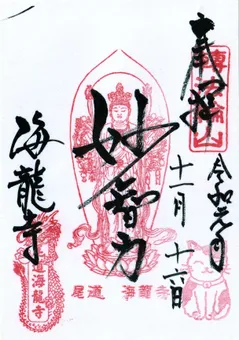 奉拝
令和元年
十一月十六日
妙智力
海龍寺
尾道 海龍寺
尾道海龍寺